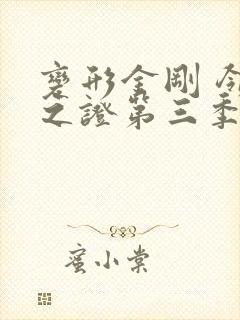 變形金剛
之證第三季
蜜小棠